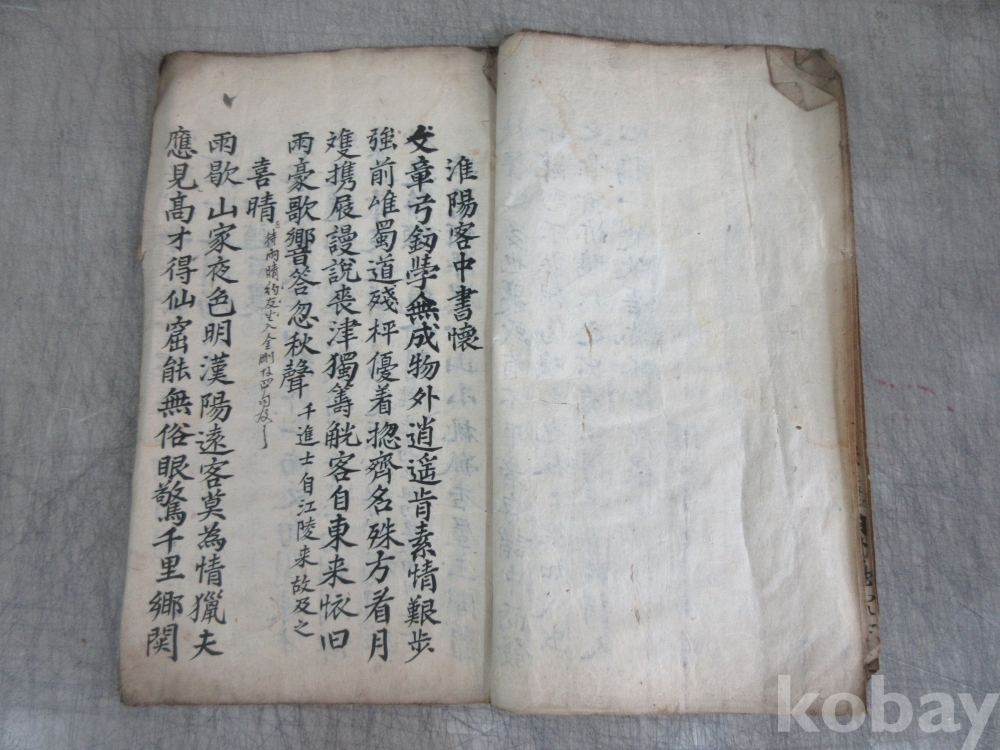 淮陽客中書懷
文章弓釰學無成物外逍遥肯素情艱步
強前唯蜀道殘枰優着揔齊名殊方看月
雙携屐謾說丧津獨籌觥客自東来恢旧
雨豪歌響答忽秋聲 千進士自江陵来故及之
喜晴 待雨晴約友生入金剛
雨歇山家夜色明漢陽遠客莫為情獵夫
應見高才得仙窟能無俗眼驚千里鄉関
kobay